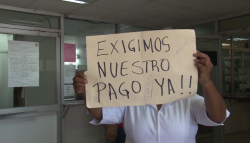 EXIGIMOS
NUESTRO
PAGO YA!!